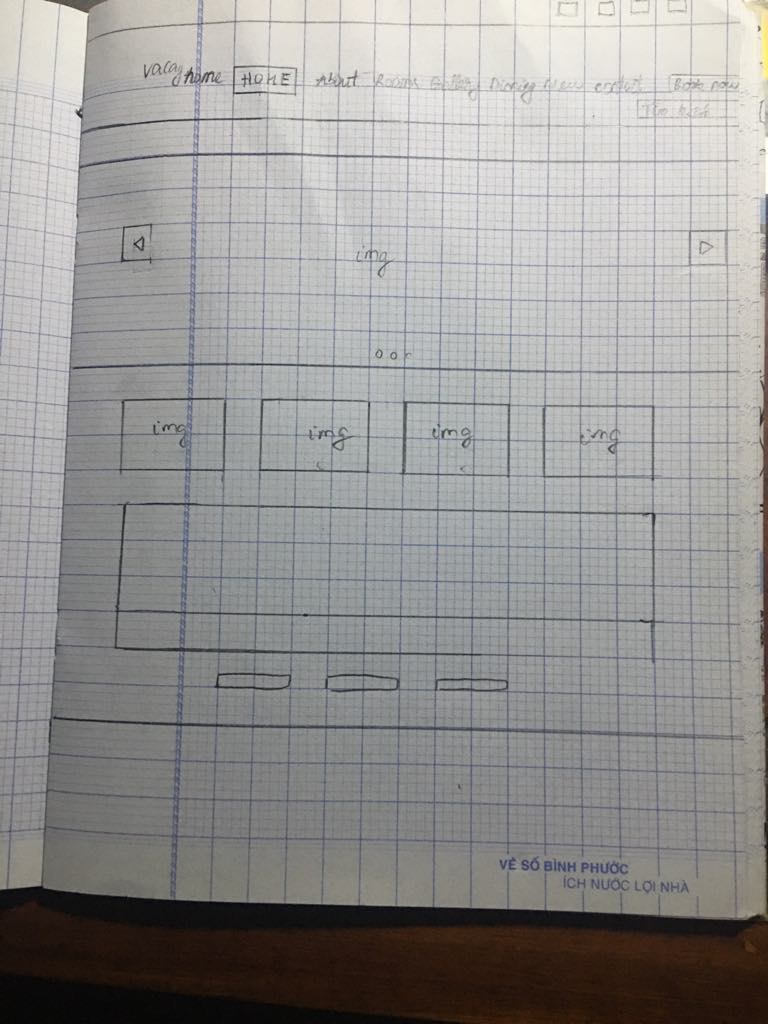 vacay home HOME About Rooms Gallery Dinning News Book now
Tìm kiếm
img
img img img img
VÉ SỐ BÌNH PHƯỚC
ÍCH NƯỚC LỢI NHÀ